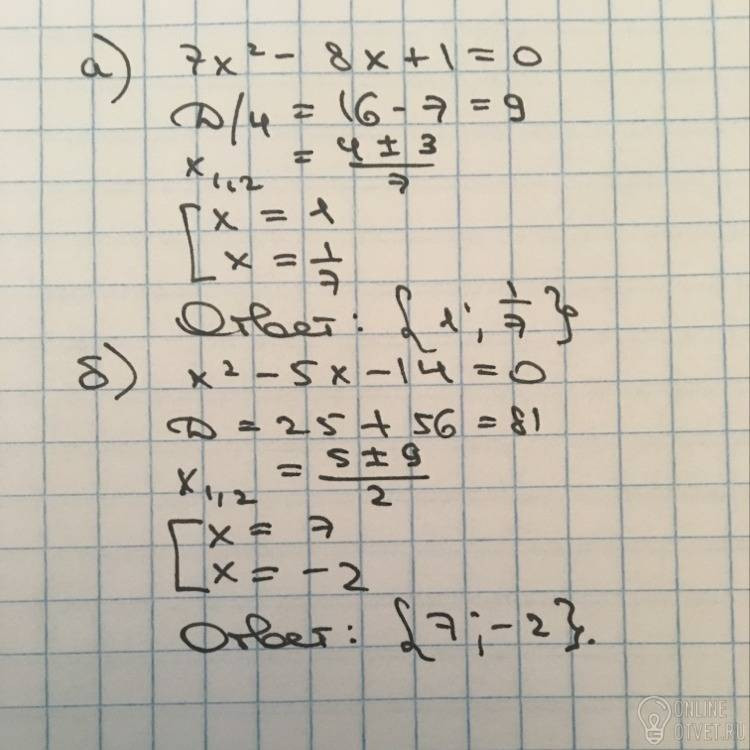 а) 7x² - 8x + 1 = 0
D/4 = 16 - 7 = 9
x₁,₂ = (4 ± 3)/7
[ x = 1
x = 1/7
Ответ: {1; 1/7}
б) x² - 5x - 14 = 0
D = 25 + 56 = 81
x₁,₂ = (5 ± 9)/2
[ x = 7
x = -2
Ответ: {7; -2}.
ONLINE
OTVET.RU